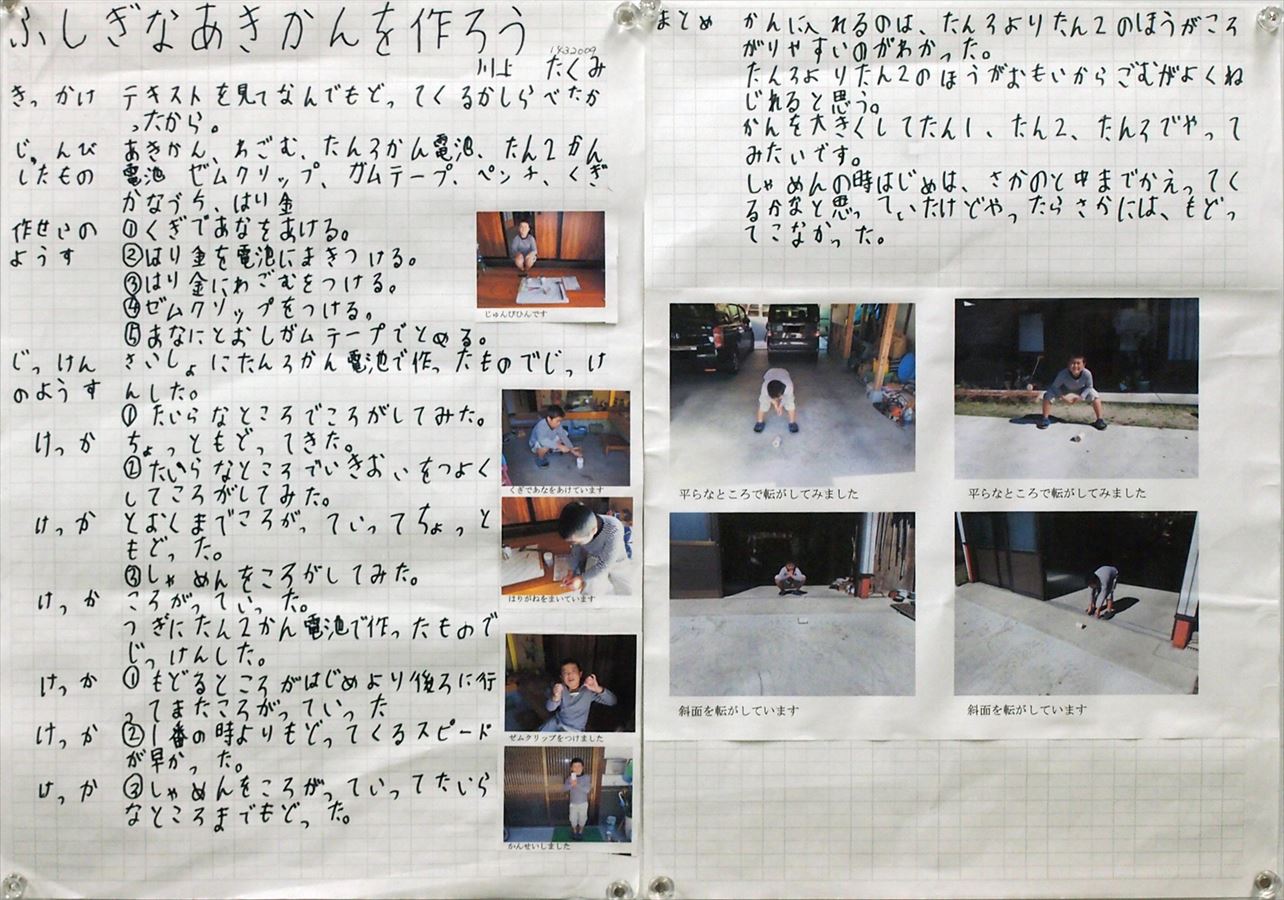 ふしぎなあきかんを作ろう
1432009
川上 たくみ
きっかけ テキストを見てなんでもどってくるかしらべたか
ったから。
じゅんび あきかん、わごむ、たん3かん電池、たん2かん
したもの 電池 ゼムクリップ、ガムテープ、ペンチ、くぎ
かなづち、はり金
作せいの ①くぎであなをあける。
ようす ②はり金を電池にまきつける。
③はり金にわごむをつける。
④ゼムクリップをつける。
⑤あなにとおしガムテープでとめる。
じゅんびひんです
じっけん さいしょにたん3かん電池で作ったものでじっけ
のようす んした。
①たいらなところでころがしてみた。
けっか ちょっともどってきた。
②たいらなところでいきおいをつよく
してころがしてみた。
けっか とおくまでころがっていってちょっと
もどった。
③しゃめんをころがしてみた。
けっか ころがっていった。
つぎにたん2かん電池で作ったもので
じっけんした。
けっか ①もどるところがはじめより後ろに行
ってまたころがっていった
けっか ②1番の時よりもどってくるスピード
が早かった。
けっか ③しゃめんをころがっていってたいら
なところまでもどった。
くぎであなをあけています
はりがねをまいています
ゼムクリップをつけました
かんせいしました
まとめ かんに入れるのは、たん3よりたん2のほうがころ
がりやすいのがわかった。
たん3よりたん2のほうがおもいからごむがよくね
じれると思う。
かんを大きくしてたん1、たん2、たん3でやって
みたいです。
しゃめんの時はじめは、さかのと中までかえってく
るかなと思っていたけどやったらさかには、もどっ
てこなかった。
平らなところで転がしてみました
平らなところで転がしてみました
斜面を転がしています
斜面を転がしています